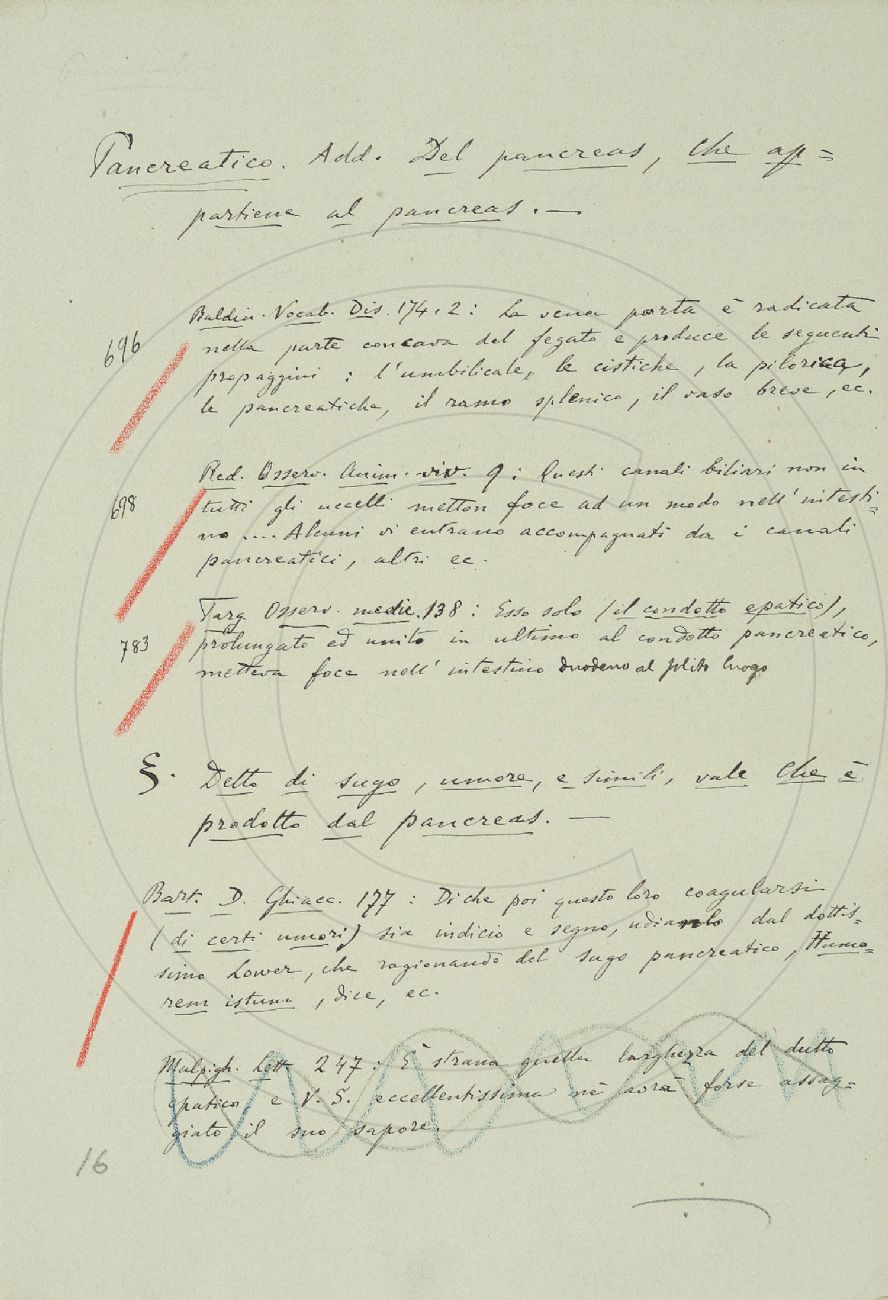 Pancreatico. Add. Del pancreas, che ap=
partiene al pancreas. —
696
Baldin. Vocab. Dis. 174. 2: La vena porta è radicata
nella parte concava del fegato e produce le seguenti
propaggini: l'umbilicale, le cistiche, la pilorica,
le pancreatiche, il ramo splenico, il vaso breve, ec.
698
Red. Osserv. Anim. viv. 9: Questi canali biliari non in
tutti gli uccelli metton foce ad un modo nell'intesti=
no .... Alcuni vi entrano accompagnati da i canali
pancreatici, altri ec.
783
Targ. Osserv. medic. 138: Esso solo (il condotto epatico),
prolungato ed unito in ultimo al condotto pancreatico,
metteva foce nell'intestino duodeno al solito luogo
§. Detto di sugo, umore, e simili, vale Che è
prodotto dal pancreas. —
Bart. D. Ghiacc. 177: Di che poi questo loro coagularsi
(di certi umori) sia indicio e segno, udianlo dal dottis=
simo Lower, che ragionando del sugo pancreatico, Humo=
rem istum, dice, ec.
Malpigh. Lett. 247: È strana quella larghezza del dutto
epatico e V. S. eccellentissima n'è avrà forse assag=
giato il suo sapore.
16